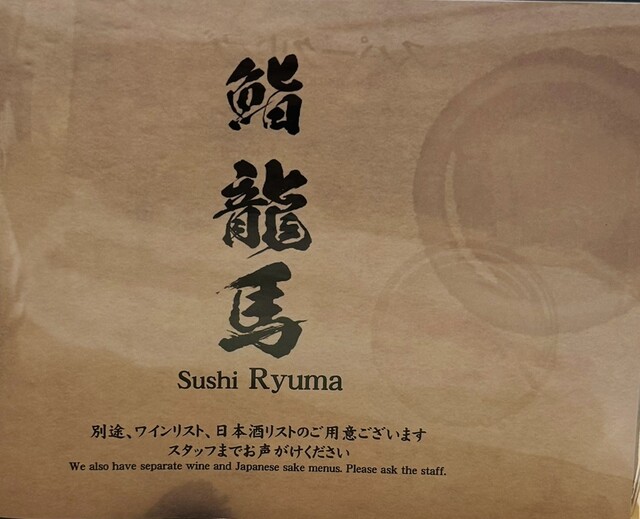 鮨龍馬
Sushi Ryuma
別途、ワインリスト、日本酒リストのご用意ございます
スタッフまでお声がけください
We also have separate wine and Japanese sake menus. Please ask the staff.